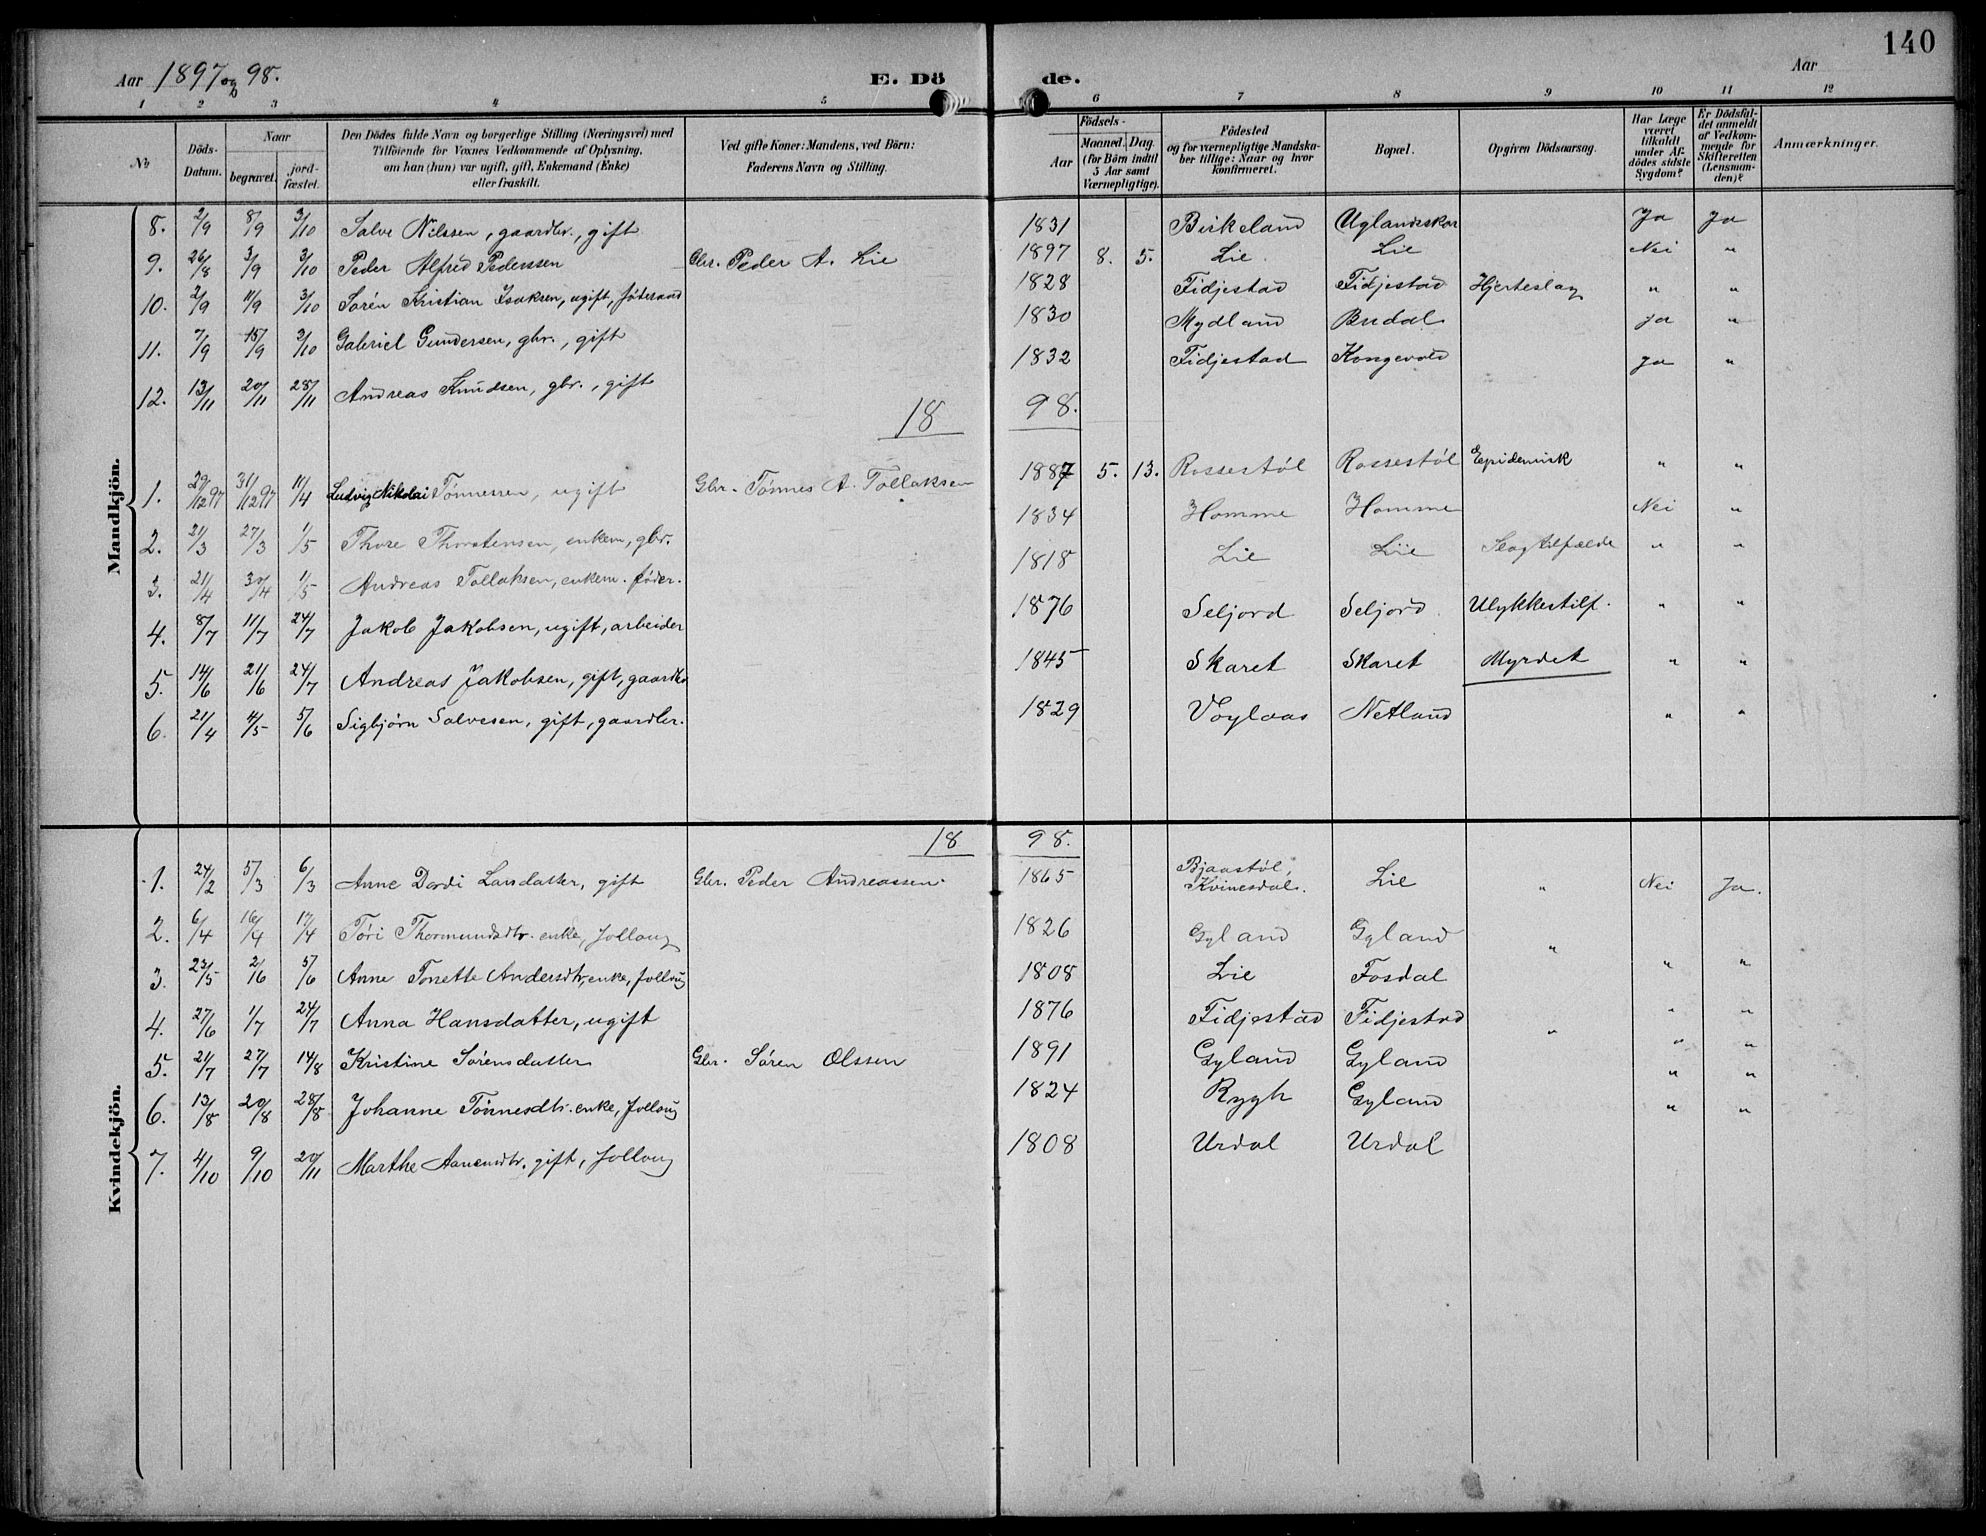 140
Aar 1897 og 98. E. Dö de. Aar
1 2 3 4 5 6 7 8 9 10 11 12
No
Döds-Datum.
Naar
begravet.
jord-fæstet.
Den Dödes fulde Navn og borgerlige Stilling (Næringsvei) med
Tilföiende for Voxnes Vedkommende af Oplysning,
om han (hun) var ugift, gift, Enkemand (Enke)
eller fraskilt.
Ved gifte Koner: Mandens, ved Börn:
Faderens Navn og Stilling.
Födsels-
Aar
Maaned. Dag.
(for Börn indtil
3 Aar samt
Værnepligtige).
Födested
og for værnepligtige Mandska-
ber tillige: Naar og hvor
konfirmeret.
Bopæl.
Opgiven Dödsaarsag.
Har Læge
været
tilkaldt
under Af-
dödes sidste
Sygdom?
Er Dödsfal-
det anmeldt
af Vedkom-
mende for
Skifteretten
(Lensman-
den)?
Anmærkninger.
Mandkjön.
8. 2/9 8/9 3/10 Salve Nilssen, gaardbr., gift 1831 Birkeland Uglandsskar Ja Ja
9. 26/8 3/9 3/10 Peder Alfred Pederssen Gbr. Peder A. Lie 1897 8. 5. Lie. Lie Nei "
10. 2/9 11/9 3/10 Sørén Kristian Isaksen, ugift, føderaad 1828 Fidjestad Fidjestad Hjerteslag " "
11. 7/9 15/9 3/10 Gabriel Gundersen, gbr., gift 1830 Mydland Budal Ja "
12. 13/11 20/11 28/11 Andreas Knudsen, gbr., gift 1832 Fidjestad Kongevold Ja "
18 98.
1. 29/12 97 31/12 97 11/4 Ludvig Nikolai Tønnessen, ugift Gbr. Tønnes A. Tollaksen 1887 5. 13. Rossestøl Rossestøl Epidemisk " "
2. 21/3 27/3 1/5 Thore Thorstensen, enkem, gbr. 1834 Homme Homme Nei "
3. 21/4 30/4 1/5 Andreas Tollaksen, enkem. føder. 1818 Lie Lie Slagtilfælde " "
4. 8/7 11/7 24/7 Jakob Jakobsen, ugift, arbeider 1876 Seljord Seljord. Ulykkestilf. " "
5. 14/6 21/6 24/7 Andreas Jakobsen, gift, gaardbr 1845 Skaret Skaret Myrdet " "
6. 21/4 4/5 5/6 Sigbjørn Salvesen, gift, gaardbr. 1829 Voylaas Netland " "
Kvindekjön.
18 98.
1. 24/2 5/3 6/3 Anne Dordi Larsdatter, gift Gbr. Peder Andreassen. 1865 Bjaastøl, Kvinesdal. Lie " Nei Ja.
2. 6/4 16/4 17/4 Tøri Thormundsdtr. enke, follaug 1826 Gyland Gyland "
3. 23/5 2/6 5/6 Anne Tonette Andersdtr, enke, follaug 1808 Lie Fosdal " "
4. 27/6 1/7 24/7 Anna Hansdatter, ugift 1876 Fidjestad Fidjestad " " "
5. 21/7 27/7 14/8 Kristine Sørensdatter Gbr. Søren Olssen 1891 Gyland Gyland " "
6. 13/8 20/8 28/8 Johanne Tønnesdtr. enke, follaug 1824 Rygh Gyland " "
7. 4/10 9/10 20/11 Marthe Aanensdtr. gift, follaug 1808 Urdal Urdal " "